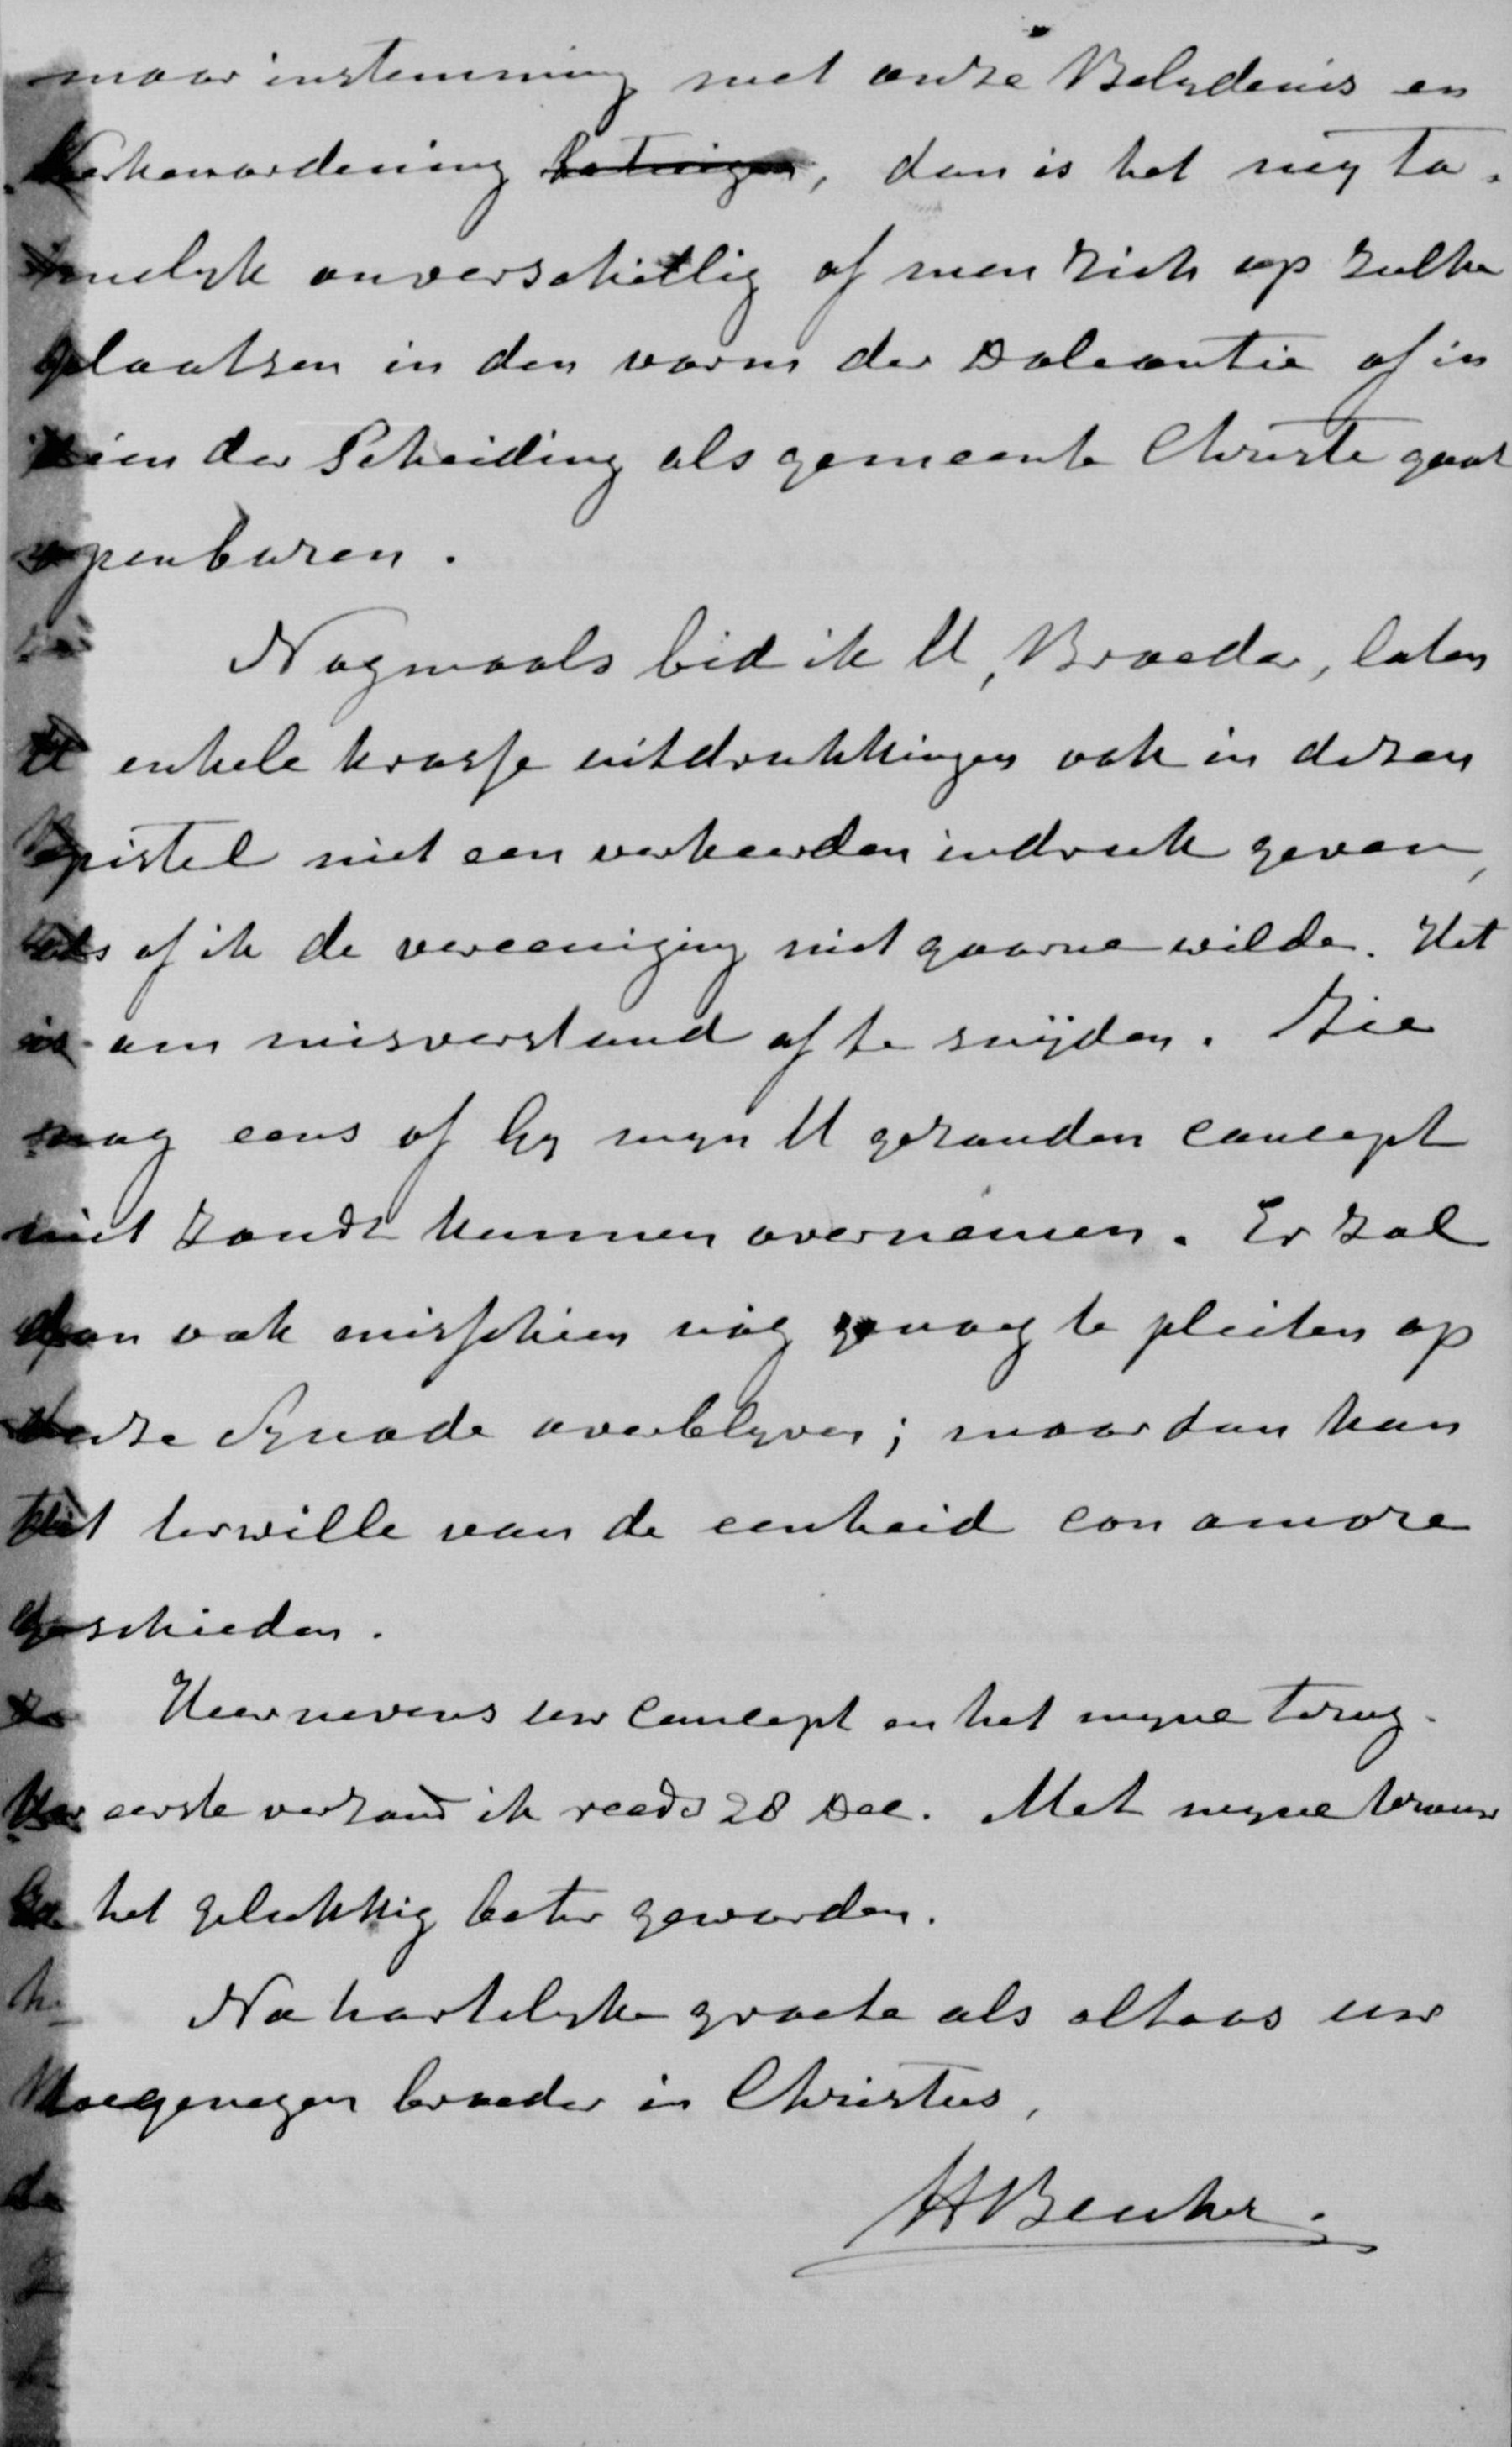 maar instemming met onze Belydenis en
Kerkenordening betuigen, dan is het my ta-
melyk onverschillig of men zich op zulke
plaatsen in den vorm der Doleantie of in
dien der Scheiding als gemeente Christi gaat
openbaren.
Nogmaals bid ik U, Broeder, laten
U enkele krasse uitdrukkingen ook in dezen
epistel niet een verkeerden indruk geven,
als of ik de vereeniging niet gaarne wilde. Het
is om misverstand af te snijden. Zie
nog eens of Gy myn U gezonden concept
niet zoudt kunnen overnemen. Er zal
dan ook misschien nòg genoeg te pleiten op
onze Synode overblyven; maar dan kan
het terwille van de eenheid con amore
geschieden.
Hiernevens uw concept en het myne terug.
Uw eerste verzond ik reeds 28 Dec. Met myne vrouw
is het gelukkig beter geworden.
Na hartelyke groete als altoos uw
toegenegen broeder in Christus,
H Beuker.